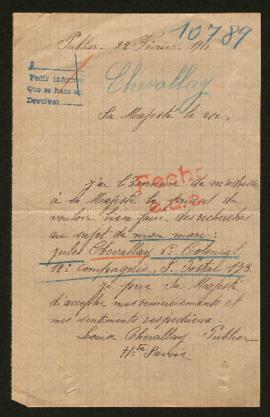 10789
Publier 22 Février 1918
A
Pedir informe
Que se haga
Devolver
Chevallay
Sa Majesté le roi,
Fecho
J'ai l'honneur de m'adresser
à Sa Majesté le priant de
vouloir bien faire des recherches
au sujet de mon mari
Jules Chevallay Colonial
12e Compagnie, S. Postal 173.
Je prie Sa Majesté
d'accepter mes remerciements et
mes sentiments respectueux.
Chevallay Publier
Hte Savoie